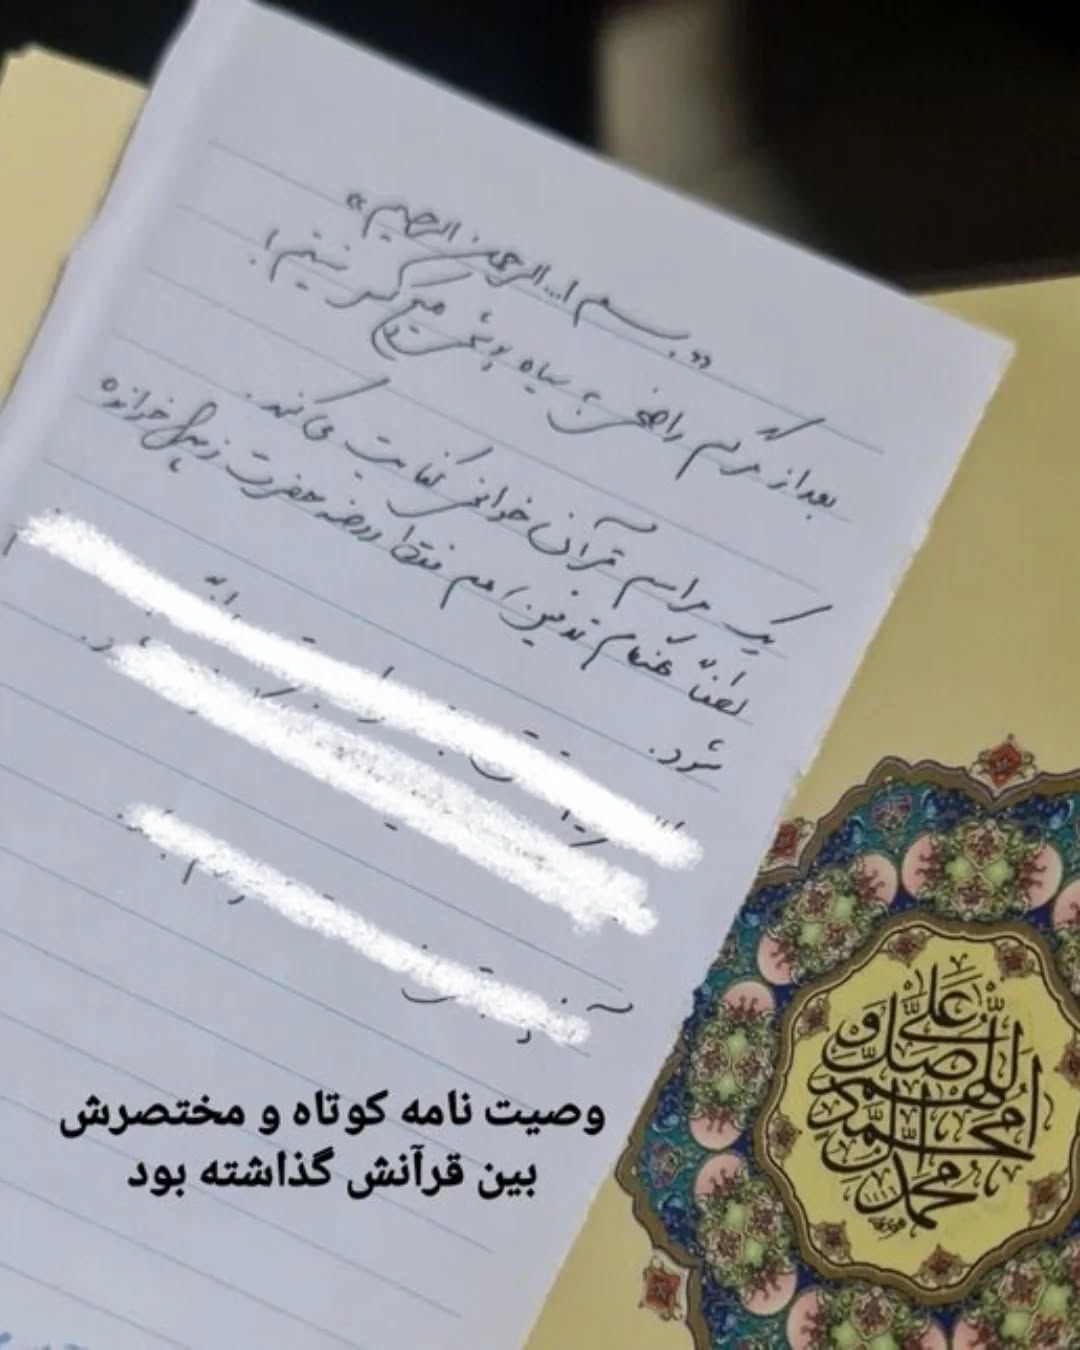 «بسم ا... الرحمن الرحیم»
بعد از مرگم راضی به سیاه پوشی هیچ‌کس نیستم!
یک مراسم قرآن خوانی کفایت می‌کند.
لطفاً هنگام تدفین، هم فقط روضه حضرت زهرا خوانده
شود.
وصیت نامه کوتاه و مختصرش
بین قرآنش گذاشته بود
اللهم صل علی محمد و آل محمد